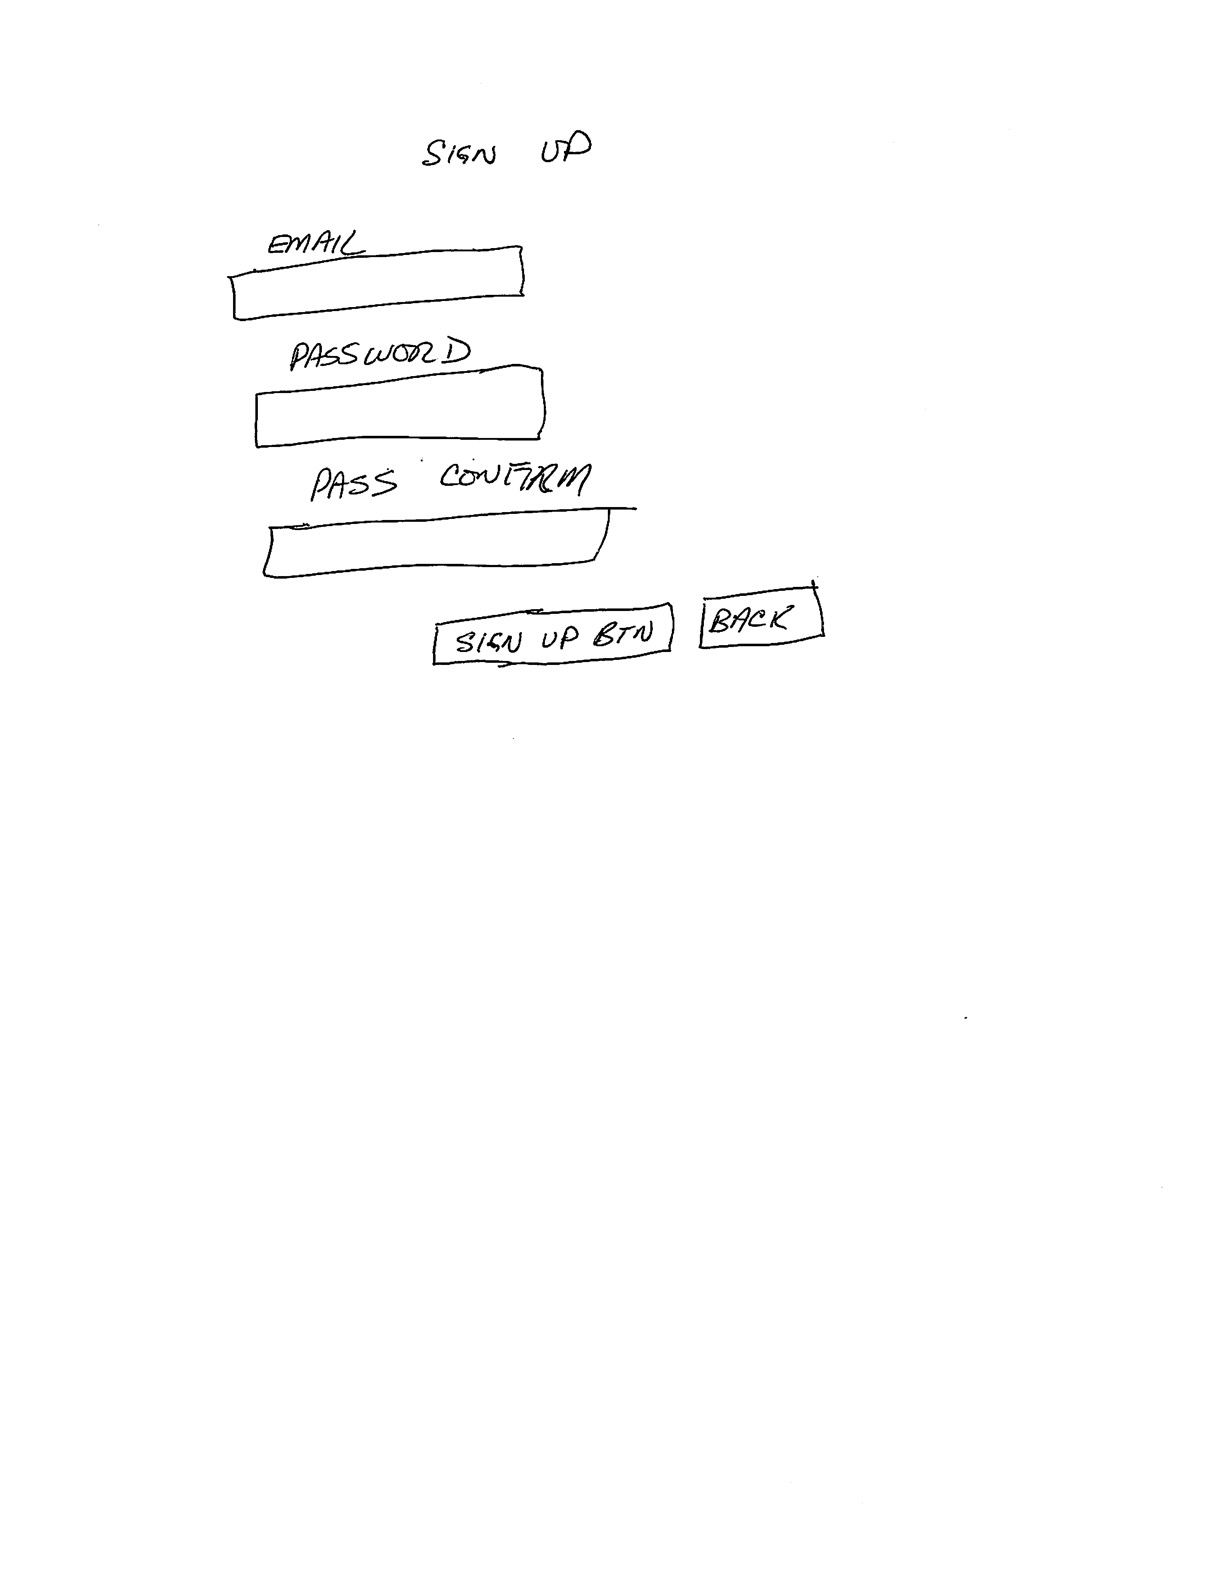 SIGN UP
EMAIL
PASSWORD
PASS CONFIRM
SIGN UP BTN
BACK